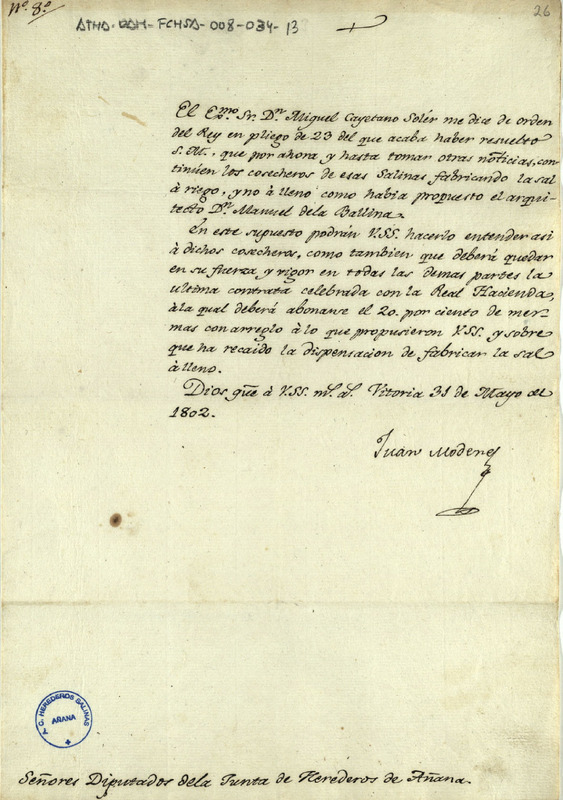 Nº. 8º
ATHA-DAH-FCHSA-008-034-13
26
El Exmo. Sr. Dn. Miguel Cayetano Solér me dice de orden
del Rey en pliego de 23 del que acaba haber resuelto
S. M., que por ahora, y hasta tomar otras noticias, con-
tinúen los cosecheros de esas Salinas fabricando la sal
à riego, y no à lleno como habia propuesto el arqui-
tecto Dn. Manuel dela Ballina.
En este supuesto podrán V.SS. hacerlo entender asi
à dichos cosecheros, como tambien que deberá quedar
en su fuerza y rigor en todas las demas partes la
ultima contrata celebrada con la Real Hacienda,
àla qual deberá abonarse el 20. por ciento de mer-
mas con arreglo à lo que propusieron V.SS. y sobre
que ha recaido la dispensacion de fabricar la sal
à lleno.
Dios gue. à V.SS. ms. as. Vitoria 31 de Mayo de
1802.
Juan Modenes
J. G. HEREDEROS SALINAS
AÑANA
Señores Diputados dela Junta de Herederos de Añana.